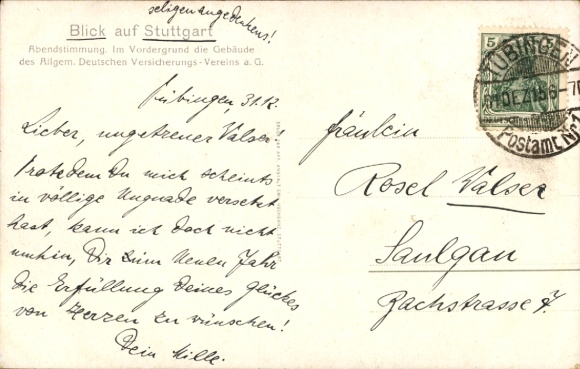 seligen angedenkens!
Blick auf Stuttgart
Abendstimmung. Im Vordergrund die Gebäude
des Allgem. Deutschen Versicherungs-Vereins a. G.
Tübingen, 31.12.
Lieber, ungetreuer Valser!
Trotzdem Du mich scheints
in völlige Ungnade versetzt
hast, kann ich doch nicht
umhin, Dir zum Neuen Jahr
die Erfüllung Deines Glückes
von Herzen zu wünschen!
Dein Mille.
5
TÜBINGEN
Postamt No 1
Fräulein
Rosel Valser
Saulgau
Bachstrasse 7.